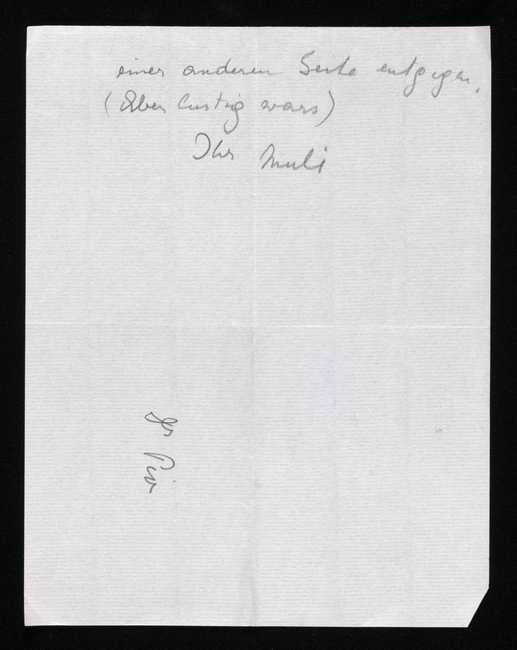 einer anderen Seite entgegen.
(Aber lustig wars)
Ihr Muli